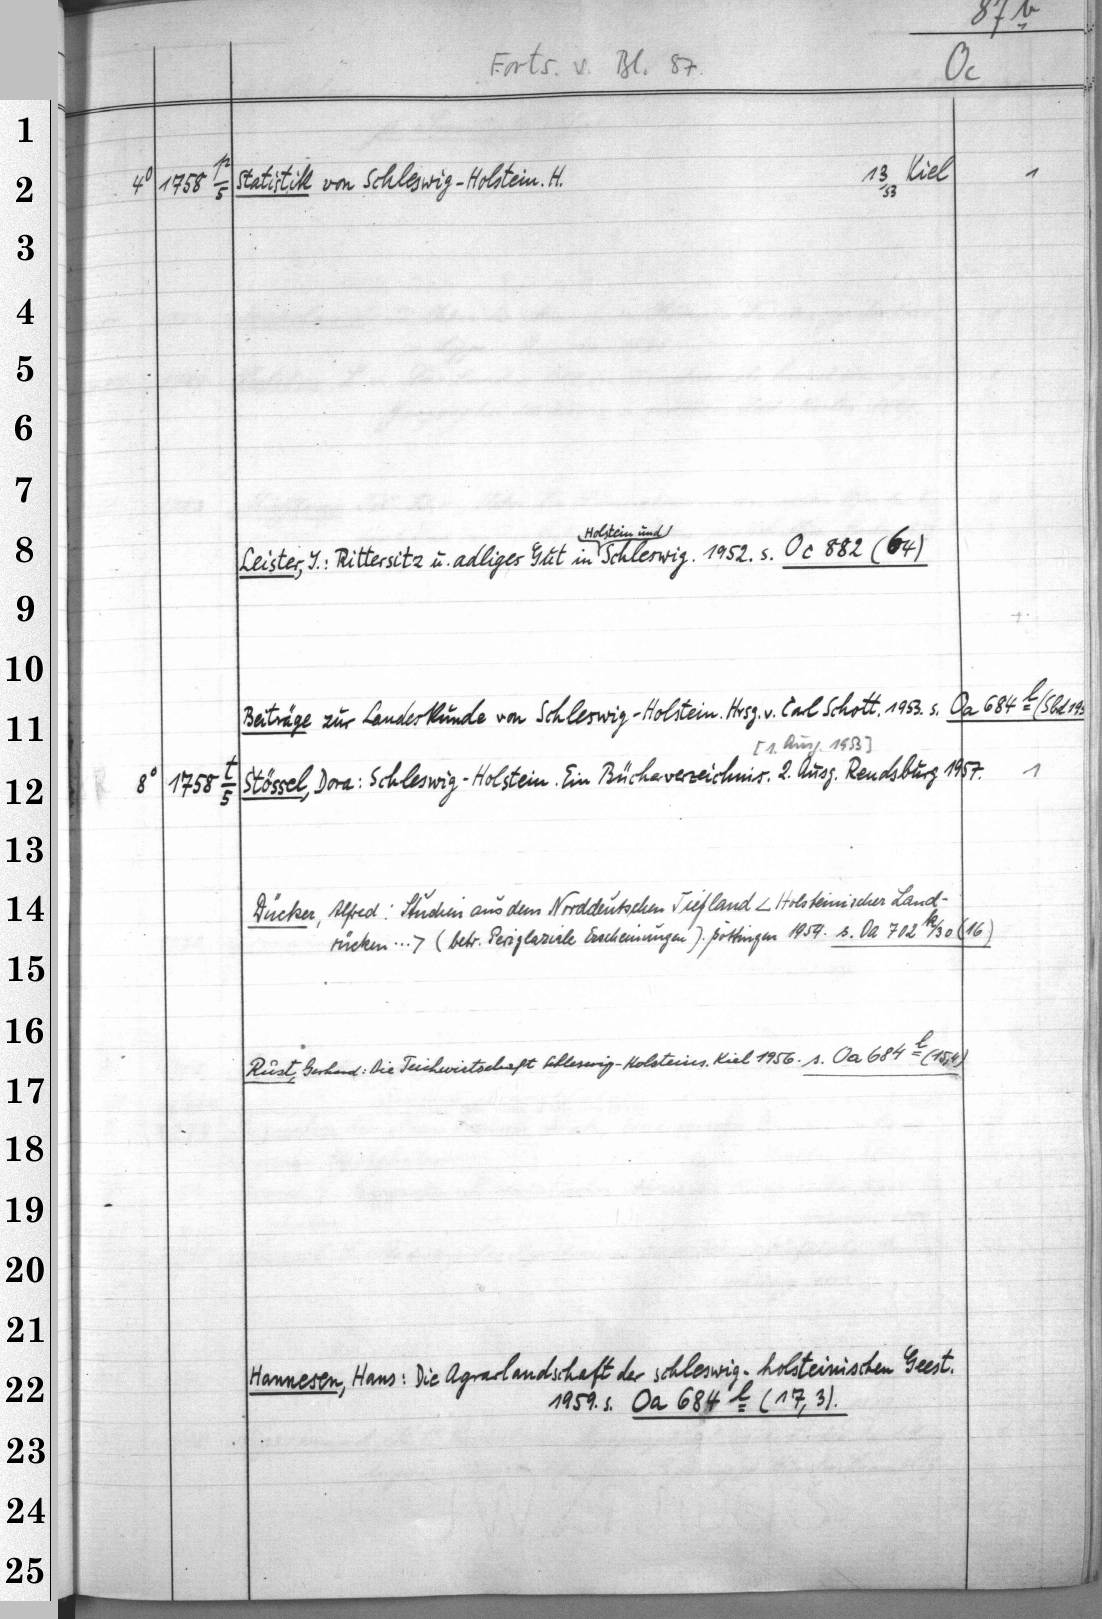 87 b
Forts. v. Bl. 87.
Oc
1
2
3
4
5
6
7
8
9
10
11
12
13
14
15
16
17
18
19
20
21
22
23
24
25
4° 1758 p/5 Statistik von Schleswig-Holstein. H. 13/53 Kiel 1
Holstein und
Leister, I.: Rittersitz u. adliges Gut in Schleswig. 1952. s. Oc 882 (64)
Beiträge zur Landeskunde von Schleswig-Holstein. Hrsg. v. Carl Schott. 1953. s. Oa 684 l (Sbd 195
[1. Ausg. 1953]
8° 1758 t/5 Stössel, Dora: Schleswig-Holstein. Ein Bücherverzeichnis. 2. Ausg. Rendsburg 1957. 1
Dücker, Alfred: Studien aus dem Norddeutschen Tiefland < Holsteinischer Land-
rücken ... > (betr. Periglaziale Erscheinungen). Göttingen 1954. s. Oa 702 k/30 (16)
Rust, Gerhard: Die Teichwirtschaft Schleswig-Holsteins. Kiel 1956. s. Oa 684 l (15,4)
Hannesen, Hans: Die Agrarlandschaft der schleswig-holsteinischen Geest.
1959. s. Oa 684 l (17, 3).